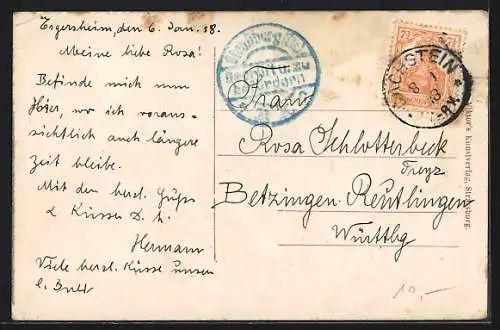 Ergersheim, den 6 Jan. 18.
Meine liebe Rosa!
Befinde mich nun
Hier, wo ich voraus-
sichtlich auch längere
Zeit bleibe.
Mit den herzl. Grüße
& Küssen D. h.
Hermann
Viele herzl. Küsse unsern
l.
Frau
Rosa Schlotterbeck
Betzingen Reutlingen
Württbg
7½ 7½
10,-
Kunstverlag, Strassburg.